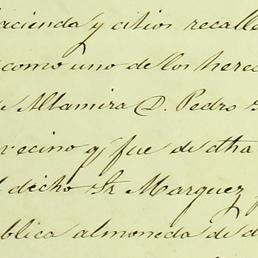 hacienda y citios recalle
como uno de los herede
de Altamira D. Pedro
vecino q fue de dha
dicho Sr Marquez
blica almoneda de d